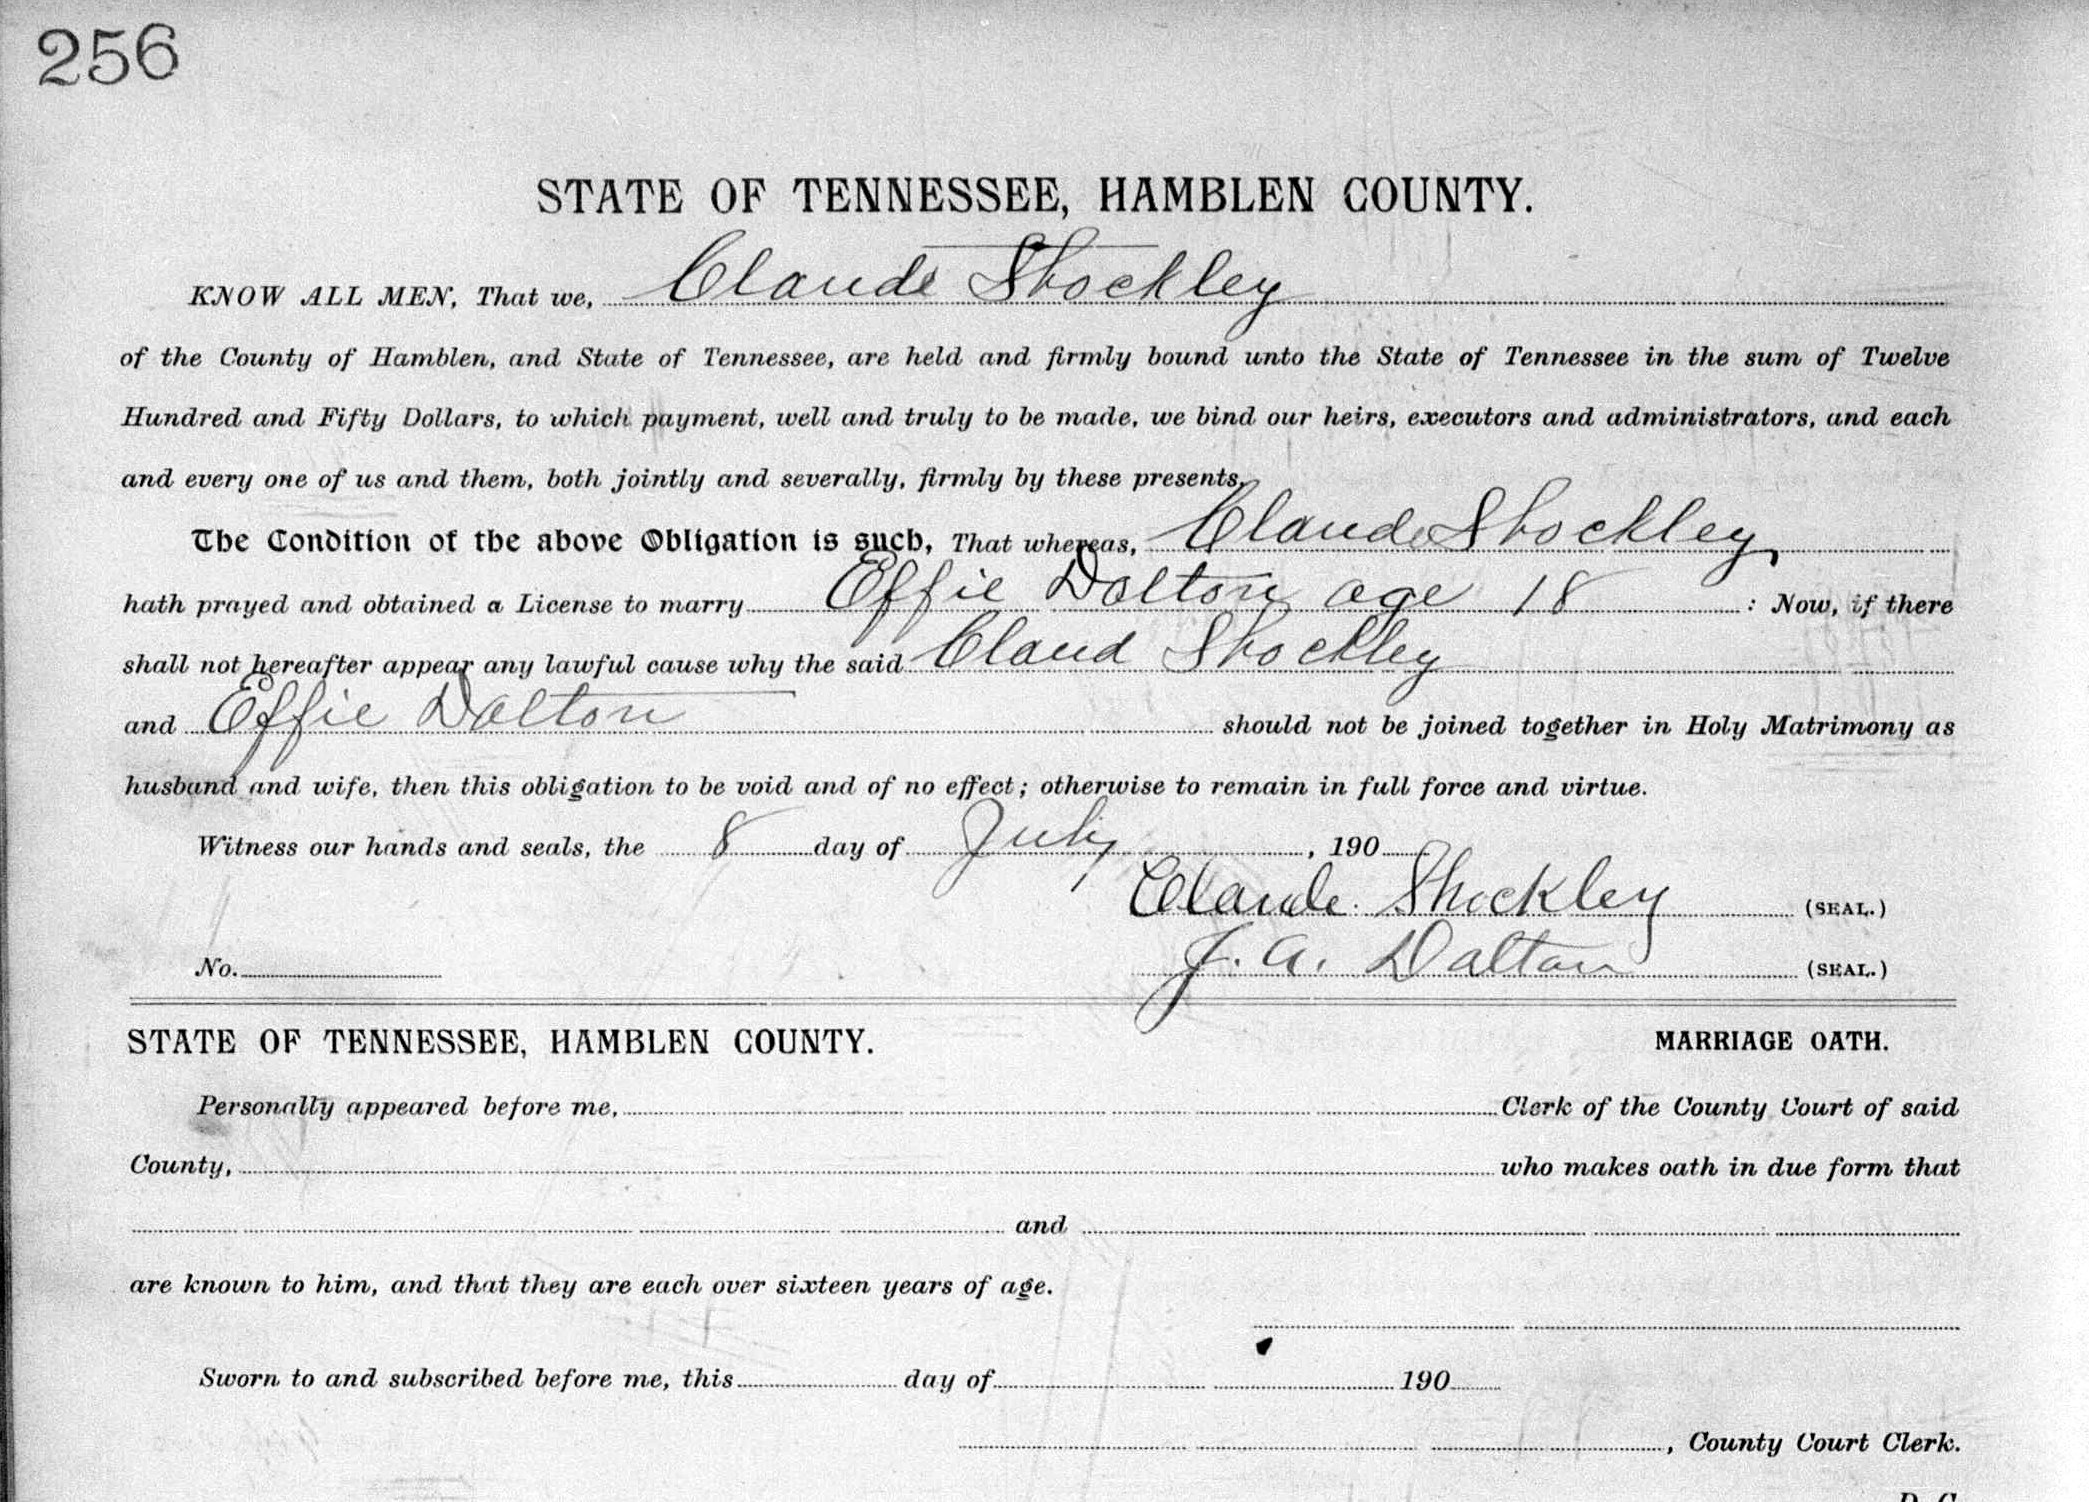 256
STATE OF TENNESSEE, HAMBLEN COUNTY.
KNOW ALL MEN, That we, Claude Shockley
of the County of Hamblen, and State of Tennessee, are held and firmly bound unto the State of Tennessee in the sum of Twelve
Hundred and Fifty Dollars, to which payment, well and truly to be made, we bind our heirs, executors and administrators, and each
and every one of us and them, both jointly and severally, firmly by these presents.
The Condition of the above Obligation is such, That whereas, Claude Shockley,
hath prayed and obtained a License to marry Effie Dalton age 18 : Now, if there
shall not hereafter appear any lawful cause why the said Claud Shockley
and Effie Dalton should not be joined together in Holy Matrimony as
husband and wife, then this obligation to be void and of no effect; otherwise to remain in full force and virtue.
Witness our hands and seals, the 8 day of July, 190
Claude Shockley (SEAL.)
No. J. A. Dalton (SEAL.)
STATE OF TENNESSEE, HAMBLEN COUNTY. MARRIAGE OATH.
Personally appeared before me, Clerk of the County Court of said
County, who makes oath in due form that
and
are known to him, and that they are each over sixteen years of age.
Sworn to and subscribed before me, this day of 190
, County Court Clerk.